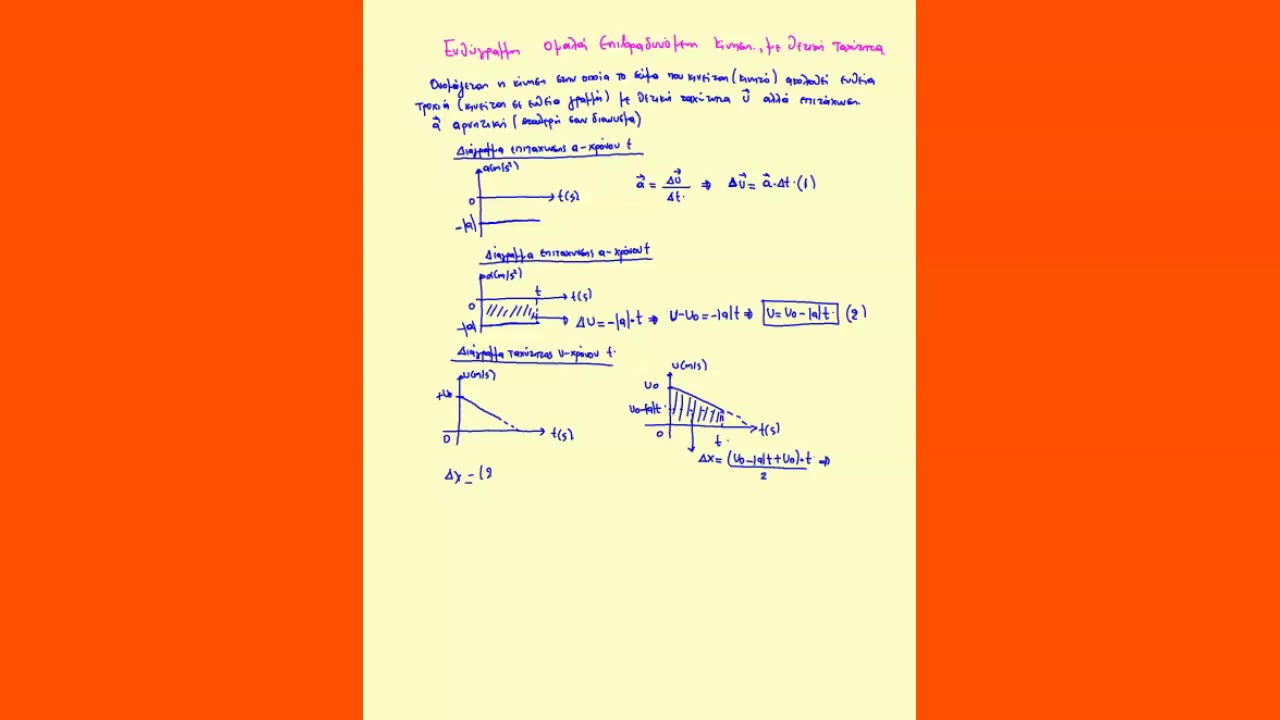 Ευθύγραμμη Ομαλά Επιβραδυνόμενη Κίνηση, με θετική ταχύτητα
Ονομάζεται η κίνηση στην οποία το σώμα που κινείται (κινητό) ακολουθεί ευθεία
τροχιά (κινείται σε ευθεία γραμμή) με θετική ταχύτητα υ⃗ αλλά επιτάχυνση
a⃗ αρνητική (σταθερή σαν διάνυσμα)
Διάγραμμα επιτάχυνσης a-χρόνου t
a(m/s²)
0
t(s)
-|a|
a⃗ = Δυ⃗/Δt ⇒ Δυ⃗ = a⃗·Δt·(1)
Διάγραμμα επιτάχυνσης a-χρόνου t
a(m/s²)
t
0
t(s)
-|a|
Δυ = -|a|·t ⇒ υ-υ₀ = -|a|t ⇒ υ = υ₀ - |a|t· (2)
Διάγραμμα ταχύτητας υ-χρόνου t·
υ(m/s)
+υ₀
0
t(s)
υ(m/s)
υ₀
υ₀-|a|t·
0
t·
t(s)
Δx = (υ₀-|a|t+υ₀)·t/2 ⇒
Δx = (2